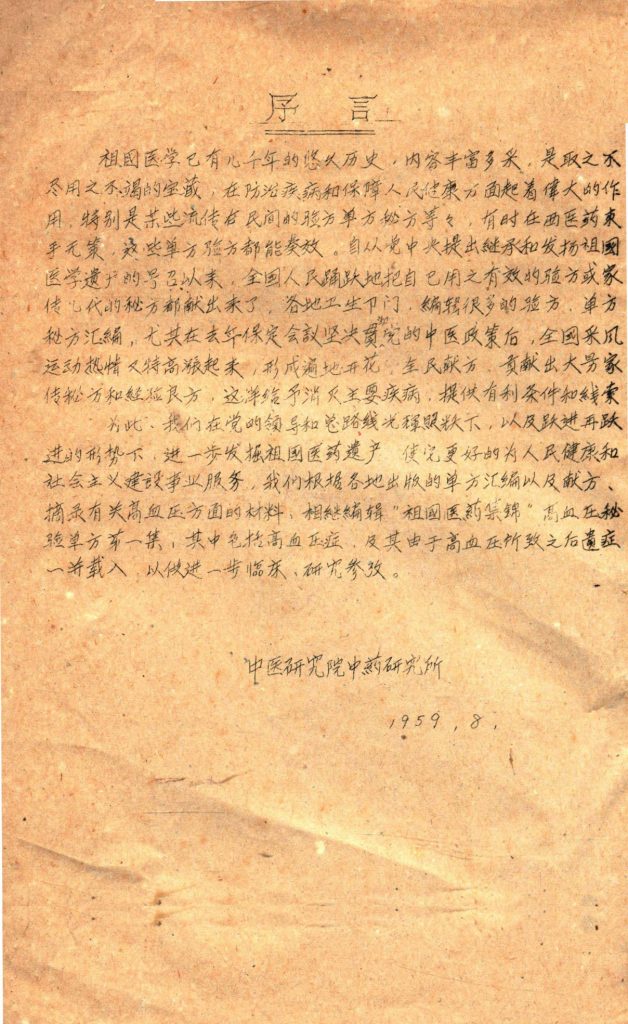 序言
祖國医学已有几千年的悠久历史，内容丰富多采，是取之不
尽用之不竭的宝藏，在防治疾病和保障人民健康方面起着偉大的作
用，特别是某些流传在民间的验方单方秘方等々，有时在西医药束
手无策，这些单方验方都能奏效。自从党中央提出继承和发扬祖國
医学遗产的号召以来，全國人民踊跃地把自已用之有效的验方或家
传几代的秘方都献出来了，各地卫生卩门，编辑很多的验方，单方
秘方汇编，尤其在去年保定会議坚决貫党的中医政策后，全國采风
运动热情又特高涨起来，形成遍地开花，全民献方，貢献出大量家
传秘方和经验良方，这样给予消灭主要疾病，提供有利条件和线索
为此，我们在党的领导和总路线光輝照耀下，以及跃进再跃
进的形势下，进一步发掘祖國医药遗产，使它更好的为人民健康和
社会主义建設事业服务，我们根据各地出版的单方汇编以及献方、
摘录有关高血压方面的材料，相继编辑“祖國医药集錦”高血压秘
验单方第一集，其中包括高血压症，及其由于高血压所致之后遺症
一并载入，以做进一步临床、研究参攷。
中医研究院中药研究所
1959.8.